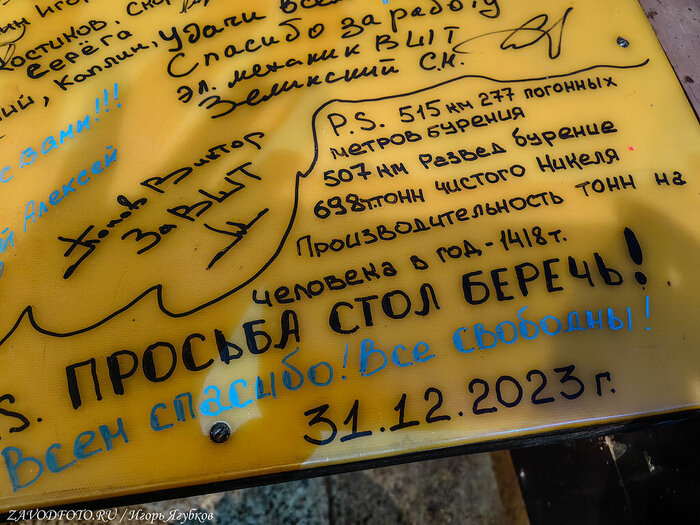 Костиков, Скор
Серёга
ий, Каплин, Удачи всем
Спасибо за работу
эл. механик ВШТ
Зелинский С.Н.
с Вами!!!
й Алексей
Хлопов Виктор
За ВШТ
P.S. 515 км 277 погонных
метров бурения
507 км Развед бурение
698т.тонн чистого Никеля
Производительность тонн на
человека в год - 1418 т.
S. ПРОСЬБА СТОЛ БЕРЕЧЬ!
Всем спасибо! Все свободны!
31.12.2023 г.
ZAVODFOTO.RU / Игорь Ягубков